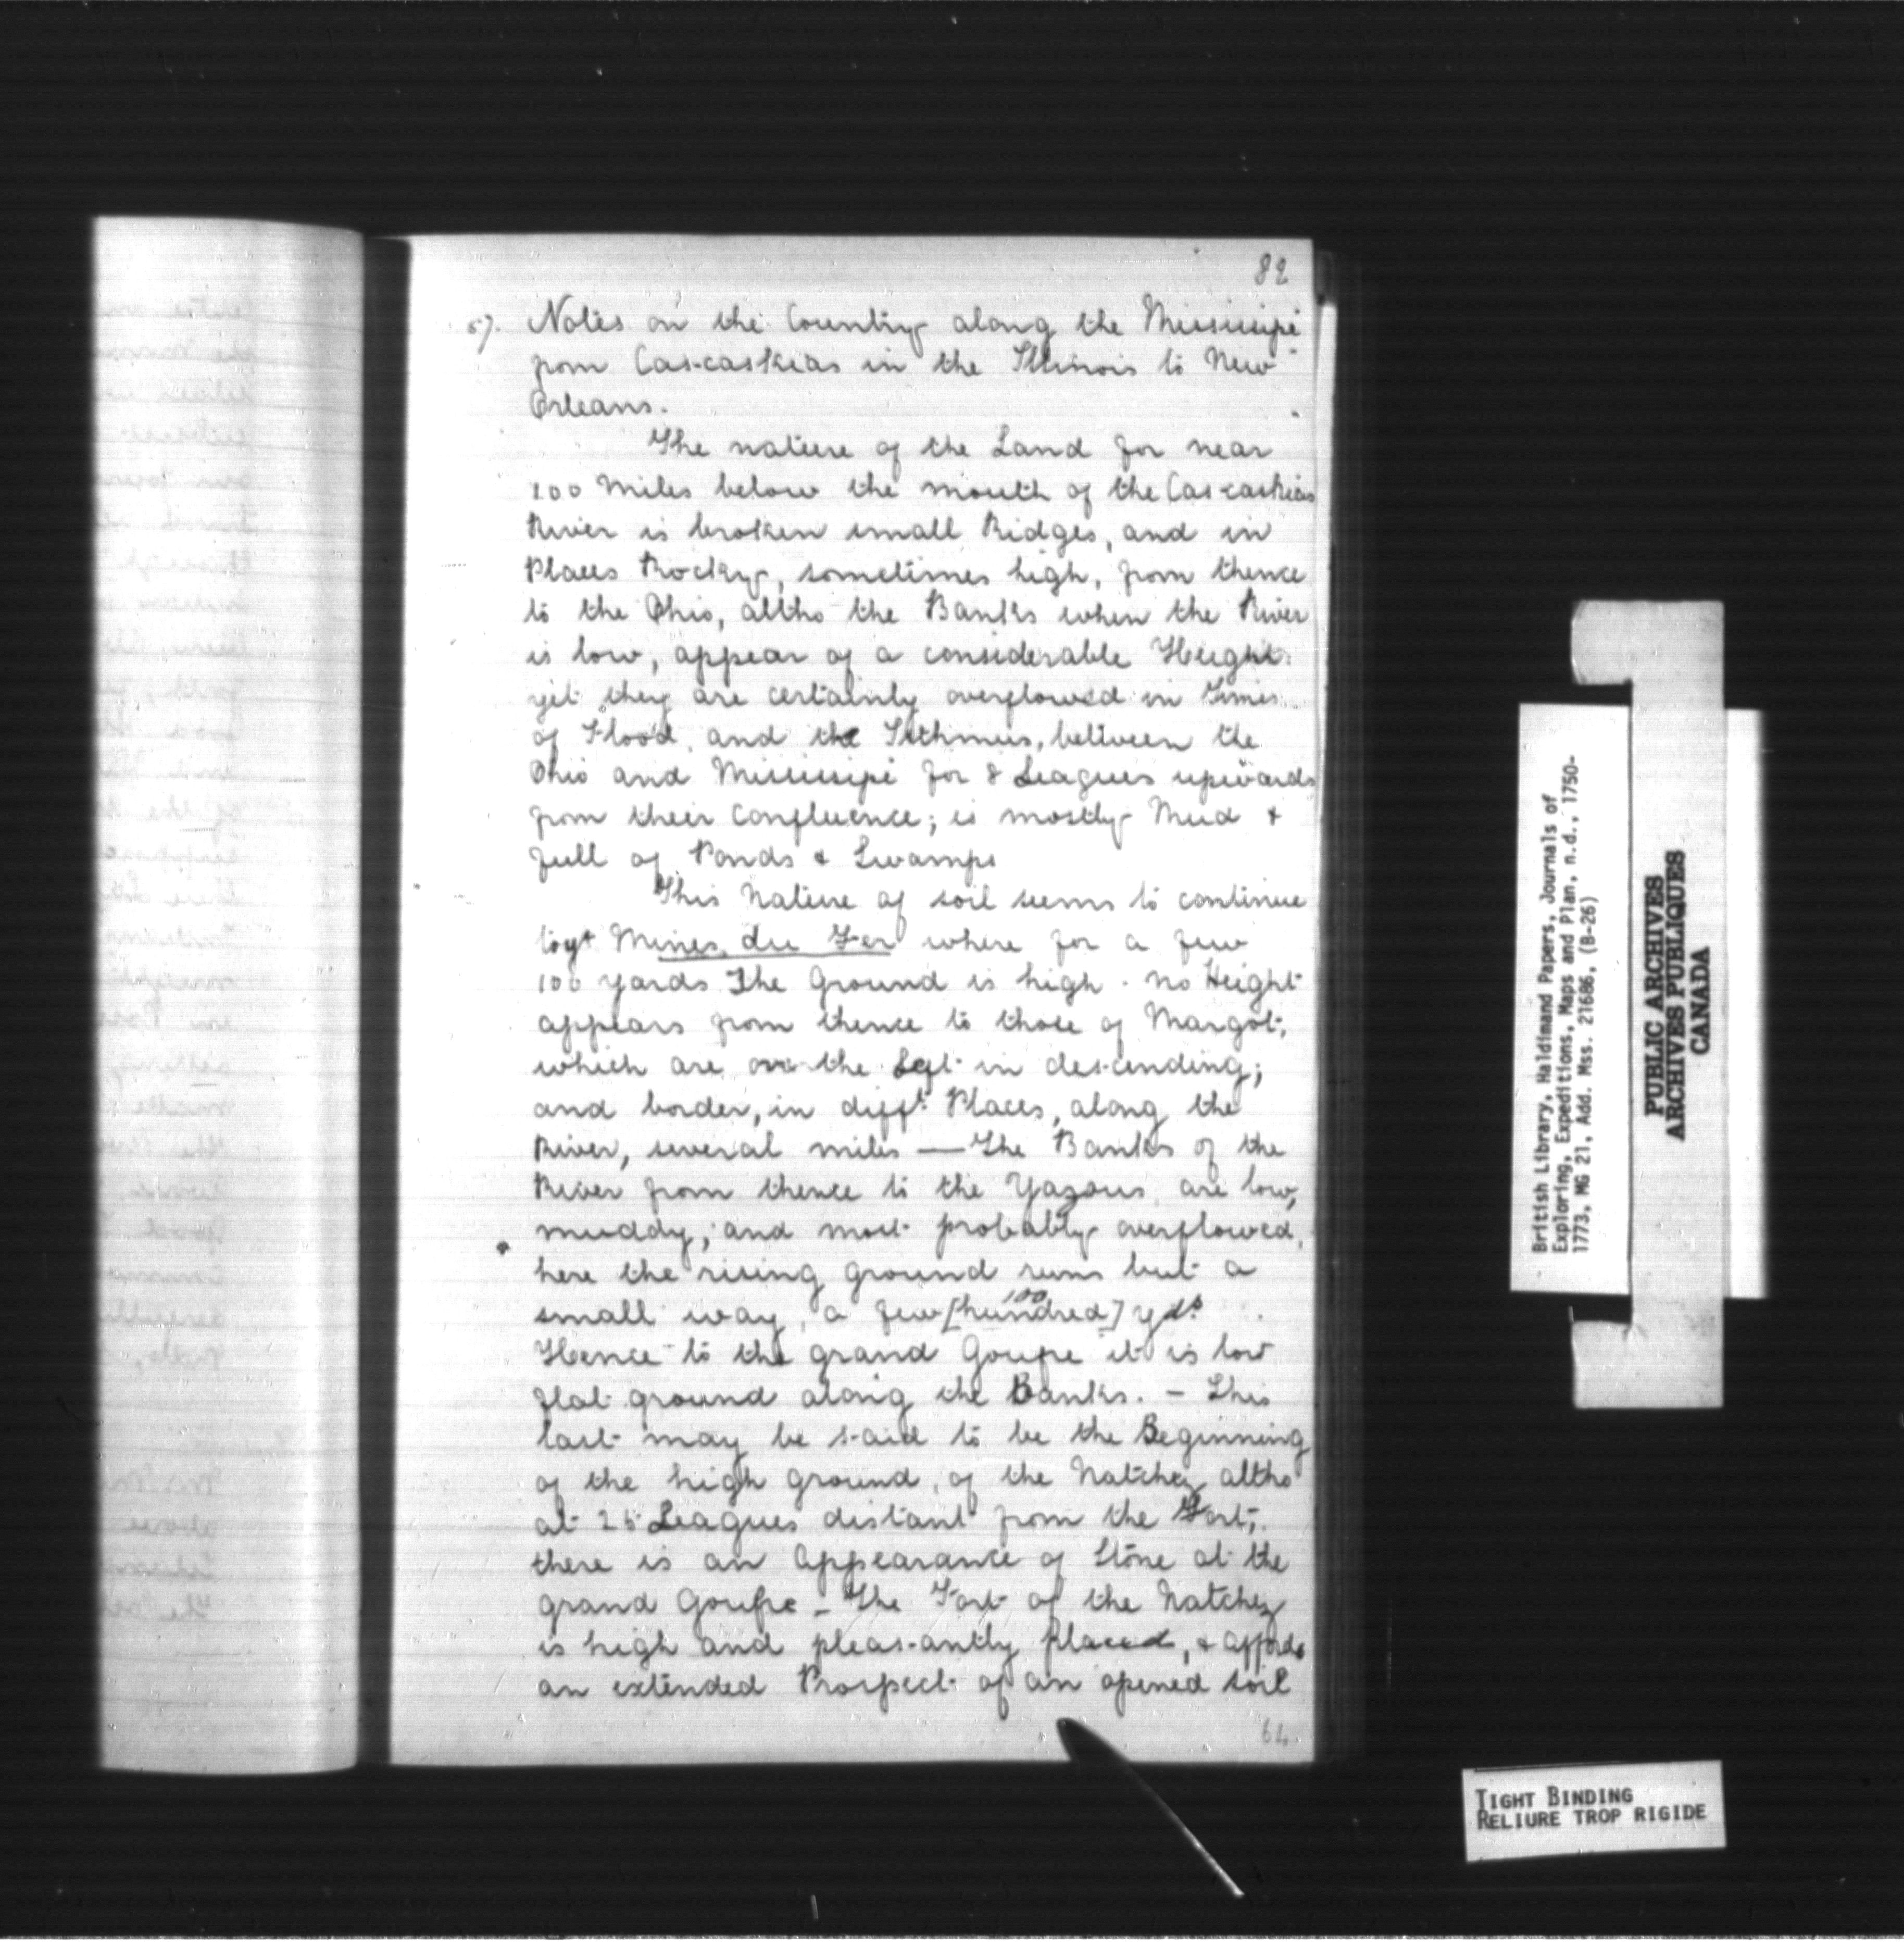 82
57. Notes on the Country along the Missisipi
from Cas-caskias in the Illinois to New
Orleans.
The nature of the Land for near
100 Miles below the mouth of the Cas-caskias
River is broken small Ridges, and in
Places Rocky, sometimes high, from thence
to the Ohio, altho the Banks when the River
is low, appear of a considerable Height
yet they are certainly overflowed in Times
of Flood, and the Isthmus, between the
Ohio and Missisipi for 8 Leagues upwards
from their Confluence; is mostly Mud &
full of Ponds & Swamps
This Nature of soil seems to continue
to yt Mines du Fer where for a few
100 yards The Ground is high . no Height
appears from thence to those of Margot,
which are on the Left in descending;
and border, in difft Places, along the
River, several miles — The Banks of the
River from thence to the Yazous are low,
muddy, and most probably overflowed,
here the rising ground runs but a
small way, a few [hundred] 100 yds
Hence to the grand Goufre it is low
flat ground along the Banks. — This
last may be s-aid to be the Beginning
of the high ground, of the Natchez altho
at 25 Leagues distant from the Fort,
there is an Appearance of Stone at the
grand Goufre - The Fort of the Natchez
is high and pleas-antly placed, & affords
an extended Prospect of an opened soil
64
British Library, Haldimand Papers, Journals of
Exploring, Expeditions, Maps and Plan, n.d., 1750-
1773, MG 21, Add. Mss. 21686, (B-26)
PUBLIC ARCHIVES
ARCHIVES PUBLIQUES
CANADA
TIGHT BINDING
RELIURE TROP RIGIDE